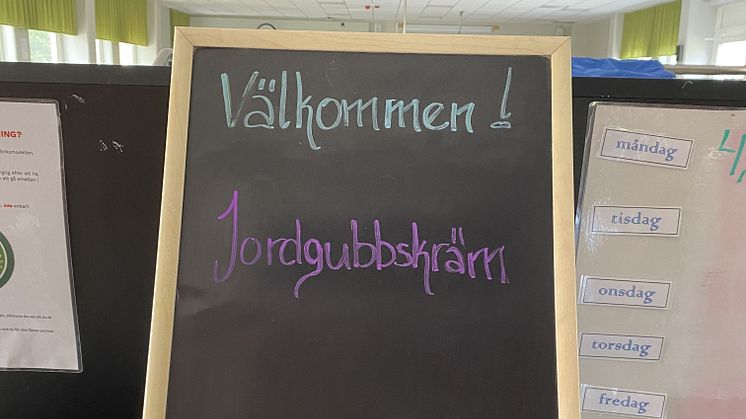 Välkommen!
Jordgubbskräm
NING?
måndag
tisdag
onsdag
torsdag
fredag